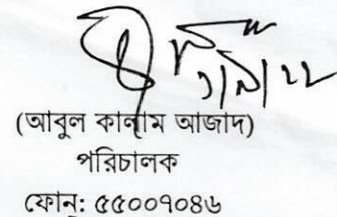 (আবুল কালাম আজাদ)
পরিচালক
ফোন: ৫৫০০৭০৪৬